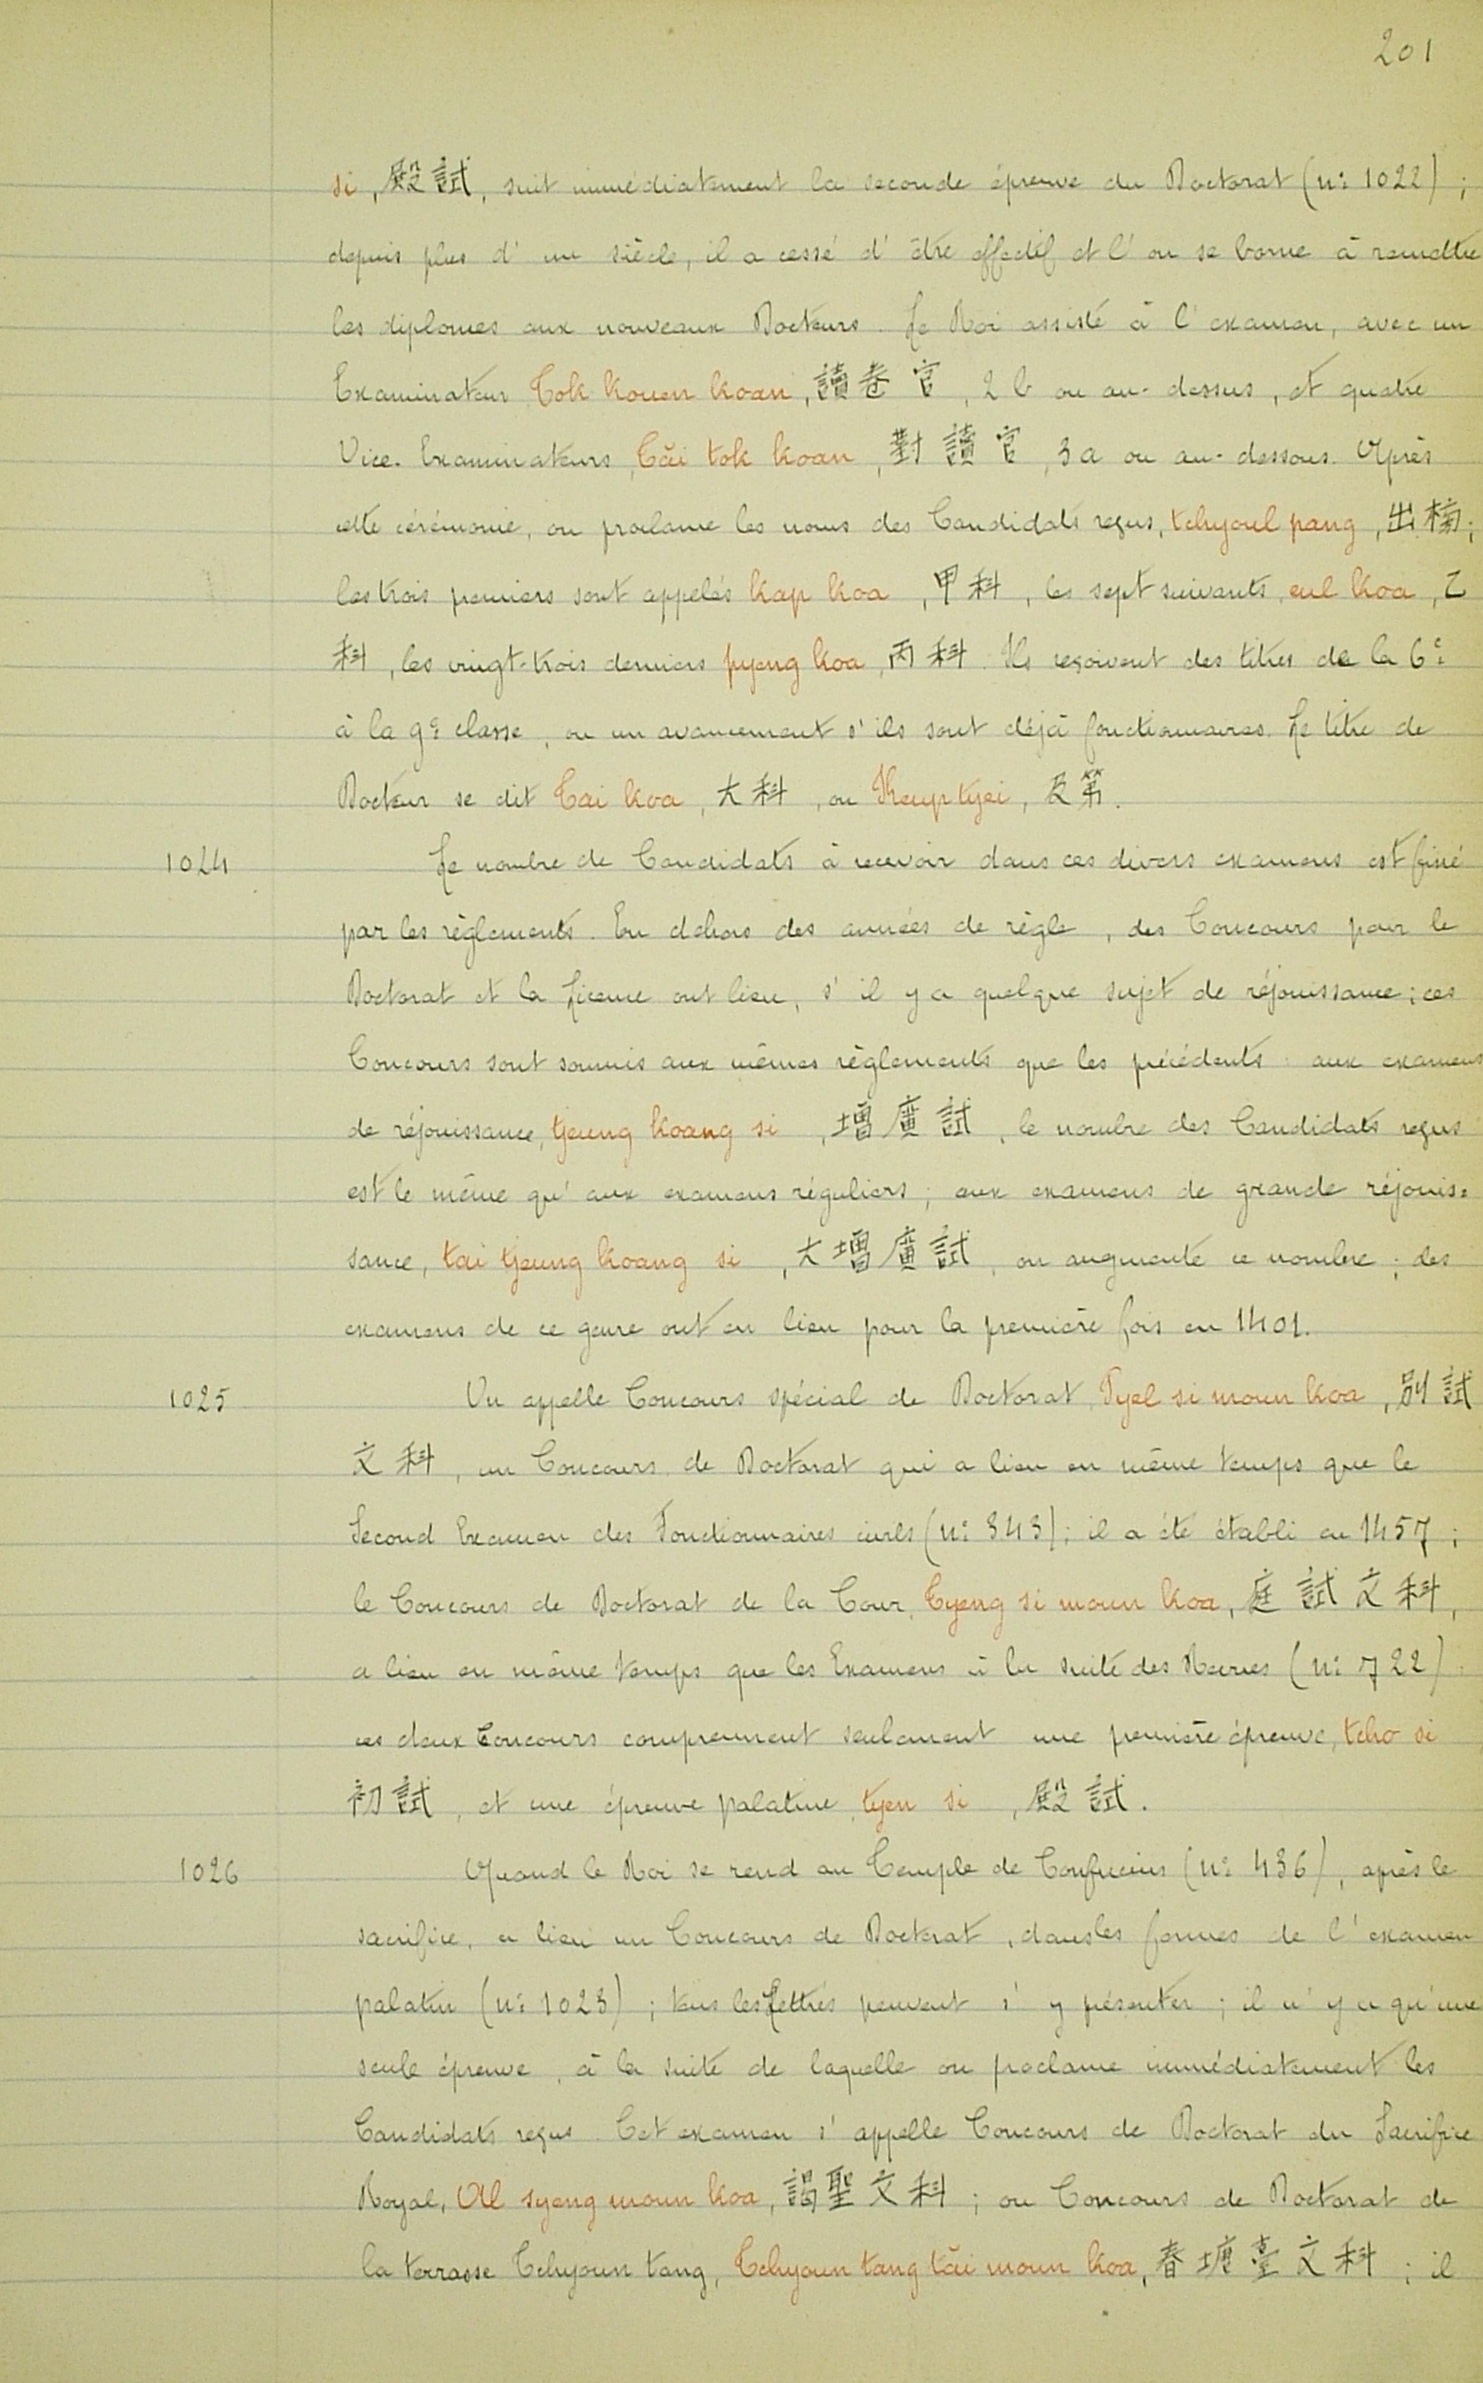 201
si, 殿試, suit immédiatement la seconde épreuve du Doctorat (nº 1022) ;
depuis plus d'un siècle, il a cessé d'être effectif et l'on se borne à remettre
les diplomes aux nouveaux Docteurs. Le Roi assiste à l'examen, avec un
Examinateur Tok kouen koan, 讀卷官, 2 b ou au-dessus, et quatre
Vice-Examinateurs, Tăi tok koan, 對讀官, 3 a ou au-dessous. Après
cette cérémonie, on proclame les noms des Candidats reçus, tchyoul pang, 出榜;
les trois premiers sont appelés kap koa, 甲科, les sept suivants, eul koa, 乙
科, les vingt-trois derniers pyeng koa, 丙科. Ils reçoivent des titres de la 6e
à la 9e classe, ou un avancement s'ils sont déjà fonctionnaires. Le titre de
Docteur se dit Tai koa, 大科, ou Keup tyei, 及第.
1024 Le nombre de Candidats à recevoir dans ces divers examens est fixé
par les règlements. En dehors des années de règle, des Concours pour le
Doctorat et la Licence ont lieu, s'il y a quelque sujet de réjouissance; ces
Concours sont soumis aux mêmes règlements que les précédents: aux examens
de réjouissance, tjeung koang si, 增廣試, le nombre des Candidats reçus
est le même qu'aux examens réguliers; aux examens de grande réjouis=
sance, tai tjeung koang si, 大增廣試, on augmente ce nombre; des
examens de ce genre ont eu lieu pour la première fois en 1401.
1025 On appelle Concours spécial de Doctorat, Pyel si moun koa, 別試
文科, un Concours de Doctorat qui a lieu en même temps que le
Second Examen des Fonctionnaires civils (nº 343); il a été établi en 1457;
le Concours de Doctorat de la Cour, Tyeng si moun koa, 庭試文科,
a lieu en même temps que les Examens à la suite des Revues (nº 722).
ces deux Concours comprennent seulement une première épreuve, tcho si
初試, et une épreuve palatine, tyen si, 殿試.
1026 Quand le Roi se rend au Temple de Confucius (nº 436), après le
sacrifice, a lieu un Concours de Doctorat, dans les formes de l'examen
palatin (nº 1023); tous les Lettrés peuvent s'y présenter; il n'y a qu'une
seule épreuve, à la suite de laquelle on proclame immédiatement les
Candidats reçus. Cet examen s'appelle Concours de Doctorat du Sacrifice
Royal, Al syeng moun koa, 謁聖文科; ou Concours de Doctorat de
la terrasse Tchyoun tang, Tchyoun tang tăi moun koa, 春塘臺文科; il